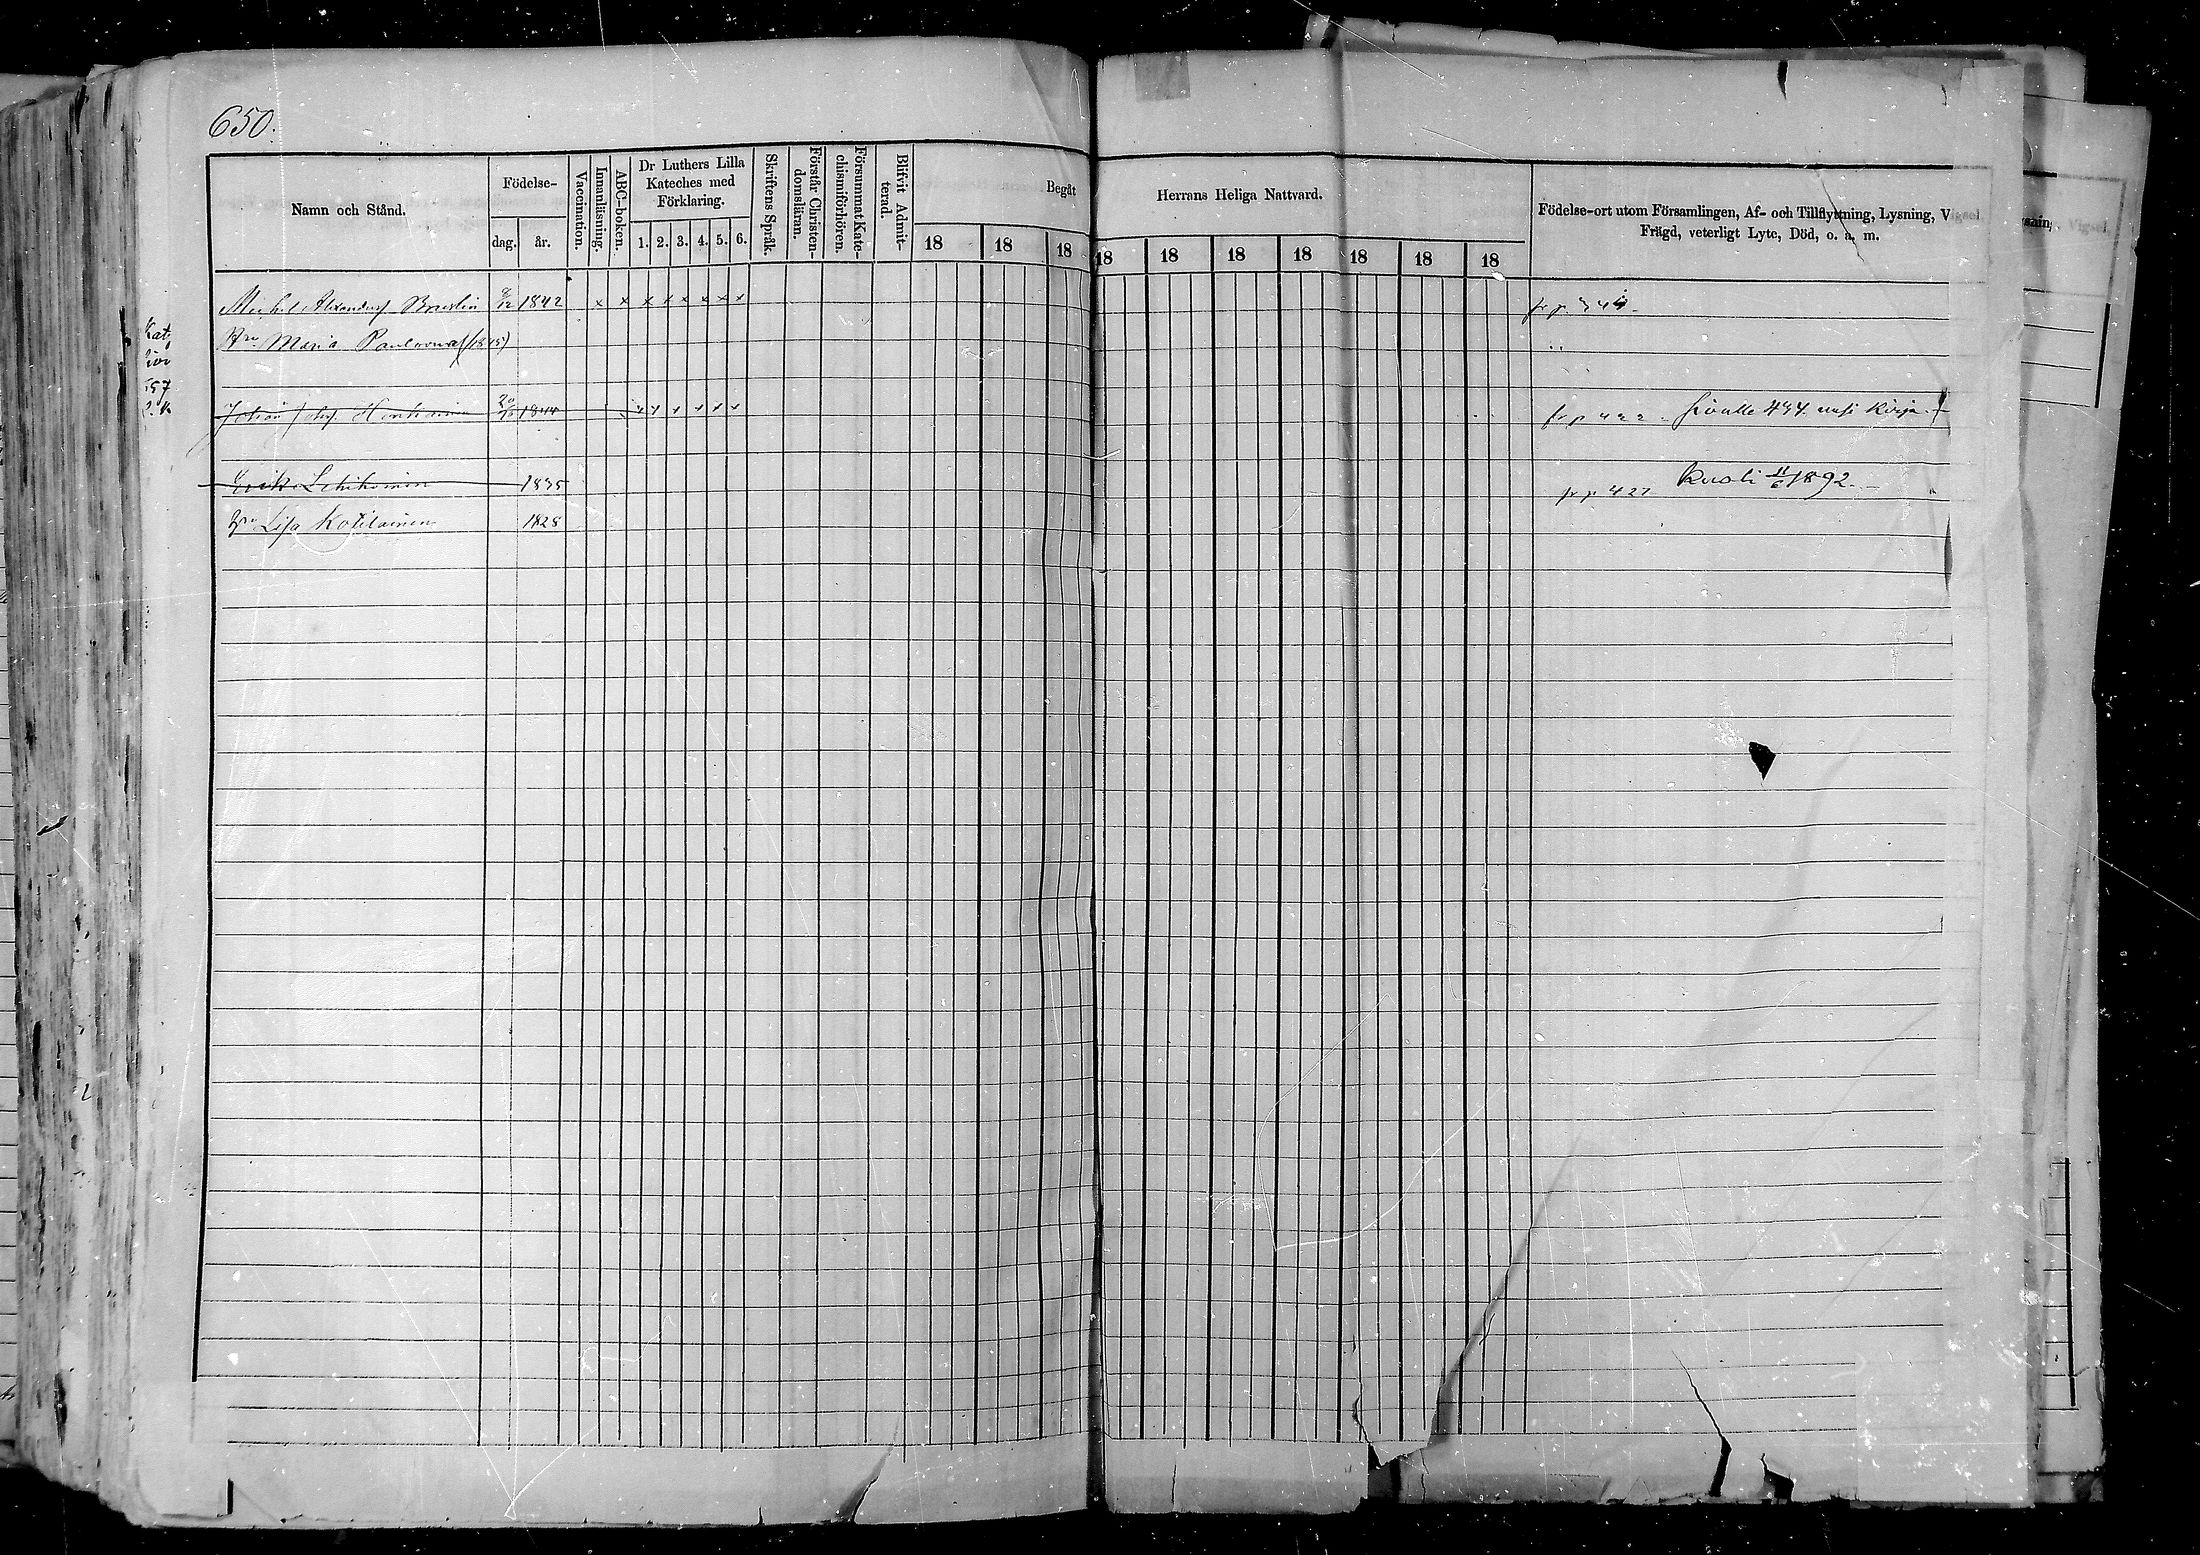 650.
Namn och Stånd.
Födelse-
dag.
år.
Vaccination.
Innanläsning.
ABC-boken.
Dr Luthers Lilla
Kateches med
Förklaring.
1. 2. 3. 4. 5. 6.
Skriftens Språk.
Förstår Christen-
domsläran.
Försummat Kate-
chismiförhören.
Blifvit Admit-
terad.
Begåt Herrans Heliga Nattvard.
18 18 18 18 18 18 18 18 18 18
Födelse-ort utom Församlingen, Af- och Tillflyttning, Lysning, Vigsel
Frägd, veterligt Lyte, Död, o. a. m.
Michel Alexandersf 1842 x x x x x x x x fr p.
Hru Maria Paulovna (1845)
Johan Johsf 1844 x x x x x x fr p 422 Sivulle 494 uusi kirja
Erik Lehikoinen 1835 fr p 427 Kuoli 11/6 1892.
Hru Lisa Kotilainen 1828